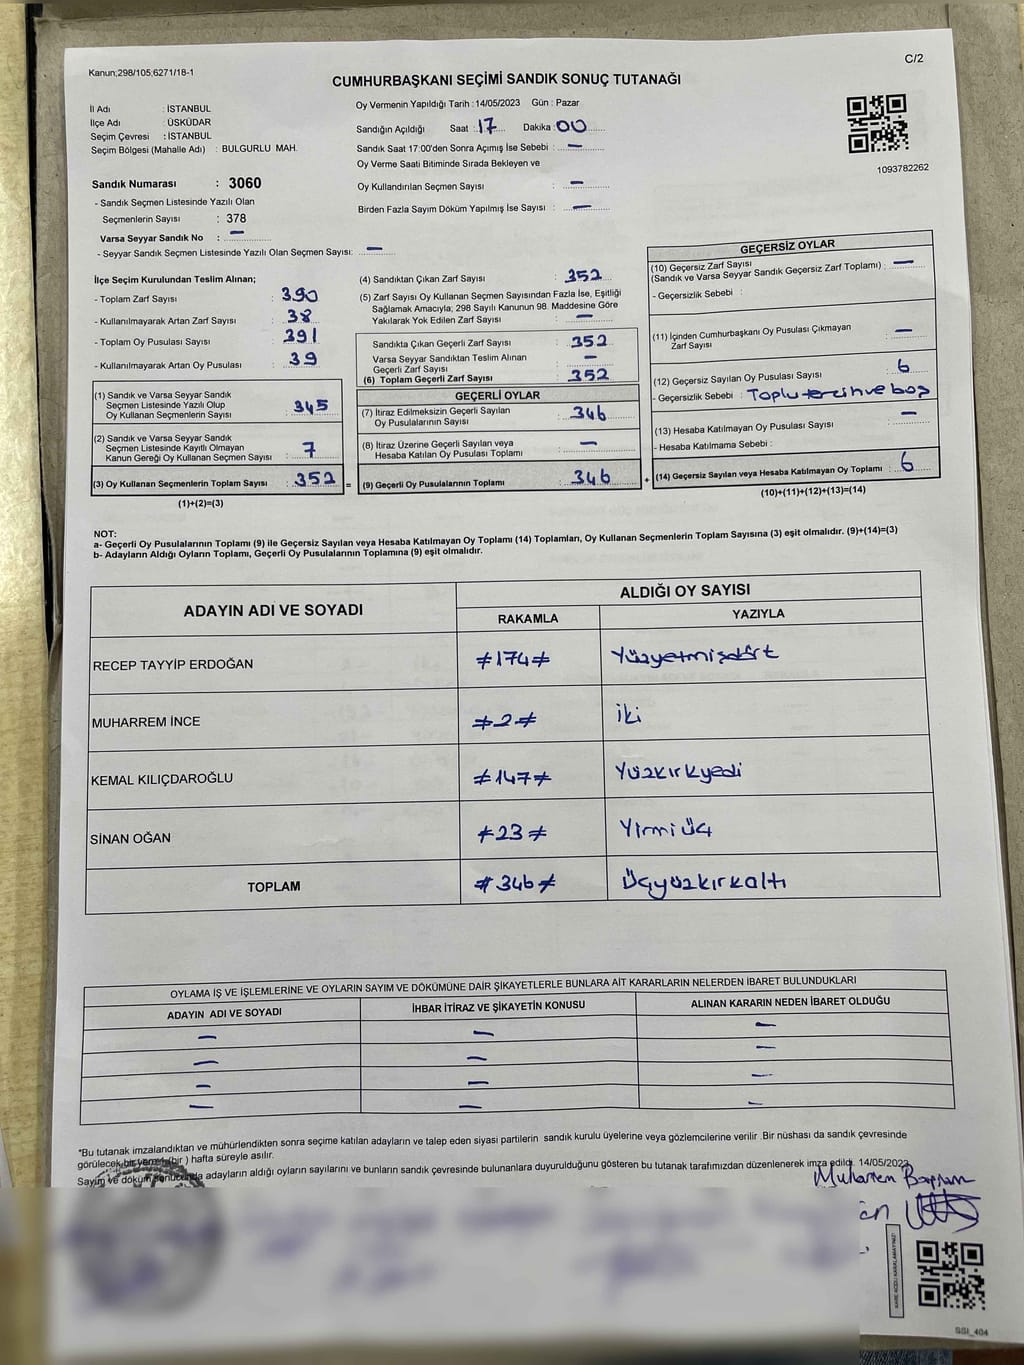 Kanun;298/105;6271/18-1
C/2
CUMHURBAŞKANI SEÇİMİ SANDIK SONUÇ TUTANAĞI
İl Adı : İSTANBUL
İlçe Adı : ÜSKÜDAR
Seçim Çevresi : İSTANBUL
Seçim Bölgesi (Mahalle Adı) : BULGURLU MAH.
Sandık Numarası : 3060
- Sandık Seçmen Listesinde Yazılı Olan
Seçmenlerin Sayısı : 378
Varsa Seyyar Sandık No : —
- Seyyar Sandık Seçmen Listesinde Yazılı Olan Seçmen Sayısı: —
Oy Vermenin Yapıldığı Tarih : 14/05/2023 Gün : Pazar
Sandığın Açıldığı Saat : 17 Dakika : 00
Sandık Saat 17:00'den Sonra Açımış İse Sebebi : —
Oy Verme Saati Bitiminde Sırada Bekleyen ve
Oy Kullandırılan Seçmen Sayısı : —
Birden Fazla Sayım Döküm Yapılmış İse Sayısı : —
1093782262
İlçe Seçim Kurulundan Teslim Alınan;
- Toplam Zarf Sayısı : 390
- Kullanılmayarak Artan Zarf Sayısı : 38
- Toplam Oy Pusulası Sayısı : 391
- Kullanılmayarak Artan Oy Pusulası : 39
(1) Sandık ve Varsa Seyyar Sandık
Seçmen Listesinde Yazılı Olup
Oy Kullanan Seçmenlerin Sayısı : 345
(2) Sandık ve Varsa Seyyar Sandık
Seçmen Listesinde Kayıtlı Olmayan
Kanun Gereği Oy Kullanan Seçmen Sayısı : 7
(3) Oy Kullanan Seçmenlerin Toplam Sayısı : 352 =
(1)+(2)=(3)
(4) Sandıktan Çıkan Zarf Sayısı : 352
(5) Zarf Sayısı Oy Kullanan Seçmen Sayısından Fazla İse, Eşitliği
Sağlamak Amacıyla; 298 Sayılı Kanunun 98. Maddesine Göre
Yakılarak Yok Edilen Zarf Sayısı : —
Sandıkta Çıkan Geçerli Zarf Sayısı : 352
Varsa Seyyar Sandıktan Teslim Alınan
Geçerli Zarf Sayısı : —
(6) Toplam Geçerli Zarf Sayısı : 352
GEÇERLİ OYLAR
(7) İtiraz Edilmeksizin Geçerli Sayılan
Oy Pusulalarının Sayısı : 346
(8) İtiraz Üzerine Geçerli Sayılan veya
Hesaba Katılan Oy Pusulası Toplamı : —
(9) Geçerli Oy Pusulalarının Toplamı : 346 +
GEÇERSİZ OYLAR
(10) Geçersiz Zarf Sayısı
(Sandık ve Varsa Seyyar Sandık Geçersiz Zarf Toplamı) : —
- Geçersizlik Sebebi :
(11) İçinden Cumhurbaşkanı Oy Pusulası Çıkmayan
Zarf Sayısı : —
(12) Geçersiz Sayılan Oy Pusulası Sayısı : 6
- Geçersizlik Sebebi : Toplu tercih ve boş
(13) Hesaba Katılmayan Oy Pusulası Sayısı : —
- Hesaba Katılmama Sebebi :
(14) Geçersiz Sayılan veya Hesaba Katılmayan Oy Toplamı : 6
(10)+(11)+(12)+(13)=(14)
NOT:
a- Geçerli Oy Pusulalarının Toplamı (9) ile Geçersiz Sayılan veya Hesaba Katılmayan Oy Toplamı (14) Toplamları, Oy Kullanan Seçmenlerin Toplam Sayısına (3) eşit olmalıdır. (9)+(14)=(3)
b- Adayların Aldığı Oyların Toplamı, Geçerli Oy Pusulalarının Toplamına (9) eşit olmalıdır.
ADAYIN ADI VE SOYADI ALDIĞI OY SAYISI
RAKAMLA YAZIYLA
RECEP TAYYİP ERDOĞAN ≠174≠ Yüzyetmişdört
MUHARREM İNCE ≠2≠ İki
KEMAL KILIÇDAROĞLU ≠147≠ Yüzkırkyedi
SİNAN OĞAN ≠23≠ Yirmi üç
TOPLAM ≠346≠ Üçyüzkırkaltı
OYLAMA İŞ VE İŞLEMLERİNE VE OYLARIN SAYIM VE DÖKÜMÜNE DAİR ŞİKAYETLERLE BUNLARA AİT KARARLARIN NELERDEN İBARET BULUNDUKLARI
ADAYIN ADI VE SOYADI İHBAR İTİRAZ VE ŞİKAYETİN KONUSU ALINAN KARARIN NEDEN İBARET OLDUĞU
— — —
— — —
— — —
— — —
*Bu tutanak imzalandıktan ve mühürlendikten sonra seçime katılan adayların ve talep eden siyasi partilerin sandık kurulu üyelerine veya gözlemcilerine verilir .Bir nüshası da sandık çevresinde
görülecek bir yere 1 (bir ) hafta süreyle asılır.
Sayım ve döküm sonucunda adayların aldığı oyların sayılarını ve bunların sandık çevresinde bulunanlara duyurulduğunu gösteren bu tutanak tarafımızdan düzenlenerek imza edildi. 14/05/2023
Muharrem Bayram
SSI_404